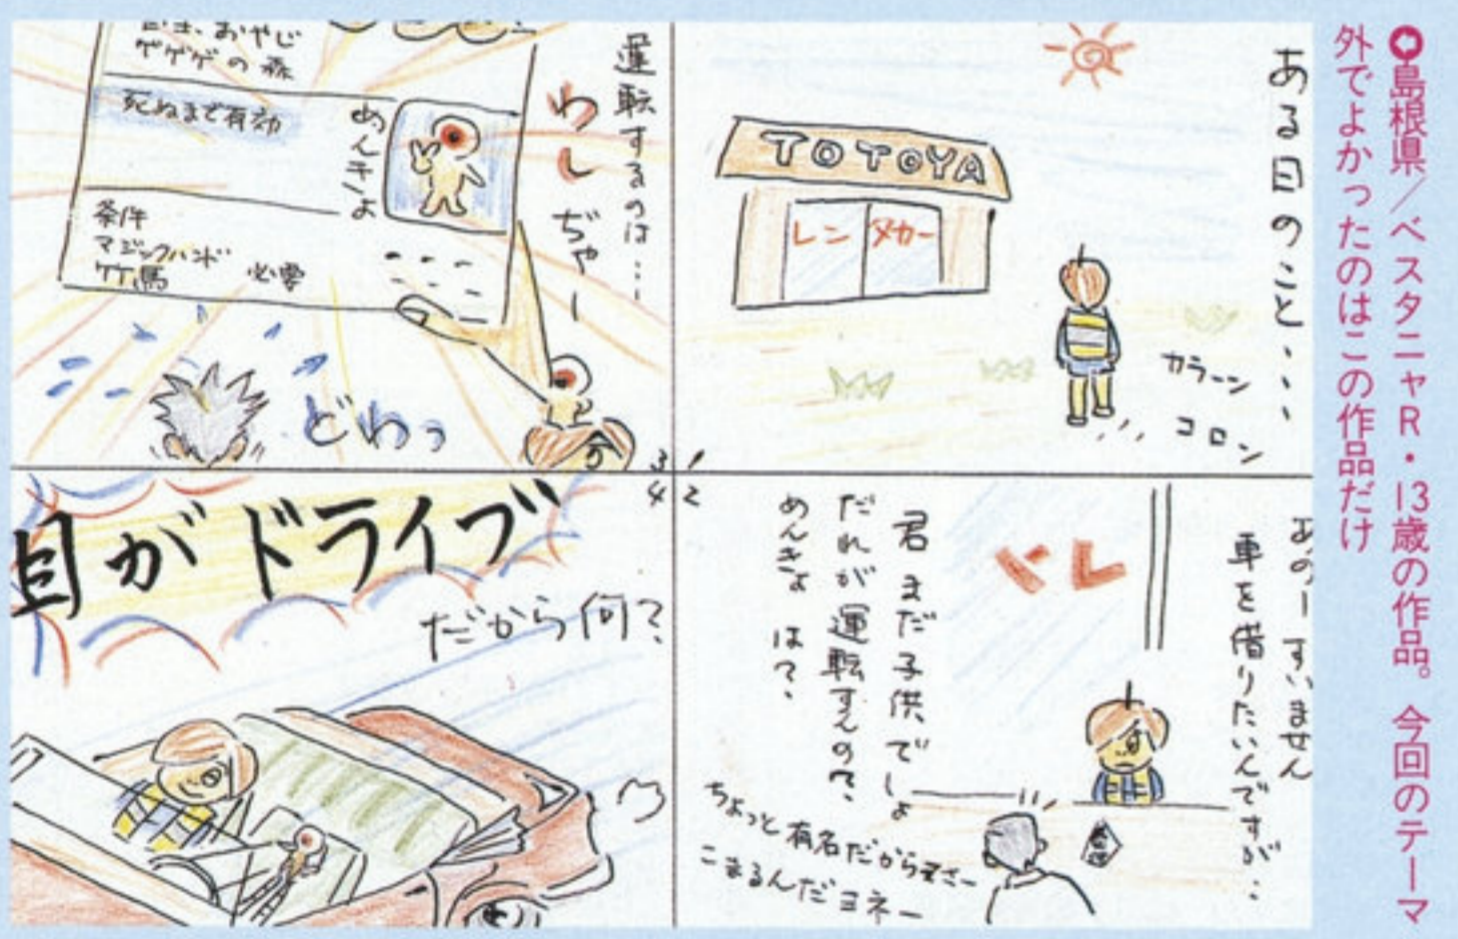 島根県／ベスタニャR・13歳の作品。今回のテーマ
外でよかったのはこの作品だけ
ある日のこと、、、
TOTOYA
レンタカー
カラーン
コロン
1
2
あのーすいません
車を借りたいんですが‥
レト
君まだ子供でしょ
だれが運転すんの?、
めんきょは?、
ちょっと有名だからってさー
こまるんだヨネー
3
運転するのは…
わしぢゃー
おやじ
ゲゲゲの森
死ぬまで有効
めんきょ
条件
マジックハンド
竹馬 必要
どわっ
4
目がドライブ
だから何?